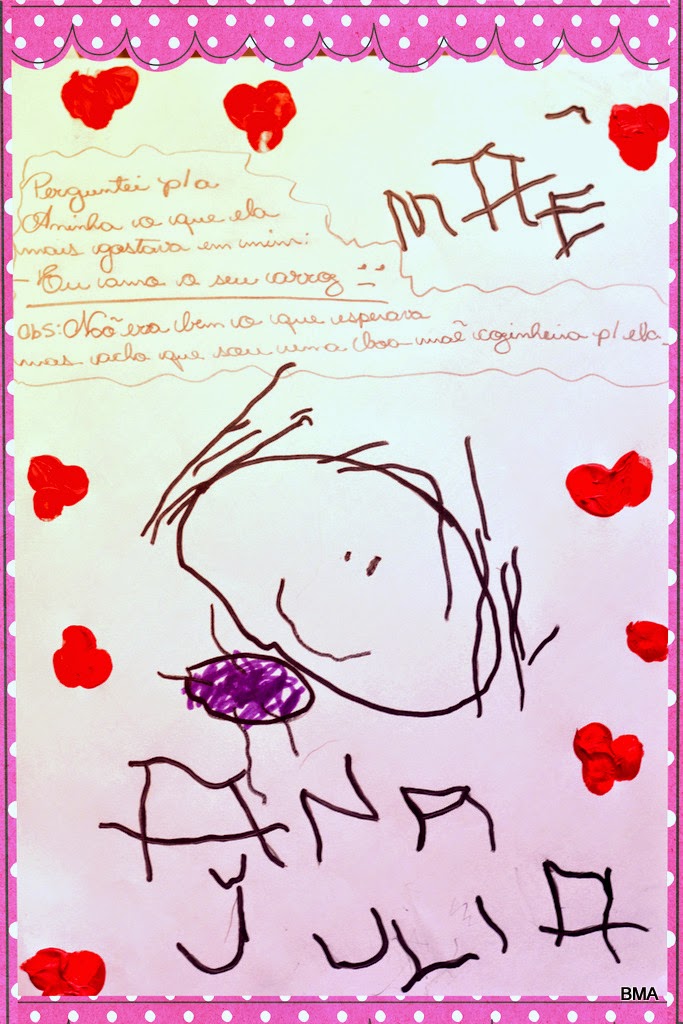 MÃE
Perguntei p/ a
Aninha o que ela
mais gostava em mim:
- Eu amo o seu arroz
Obs: Não era bem o que esperava
mas acho que sou uma boa mãe cozinheira p/ ela.
ANA
JULIA
BMA